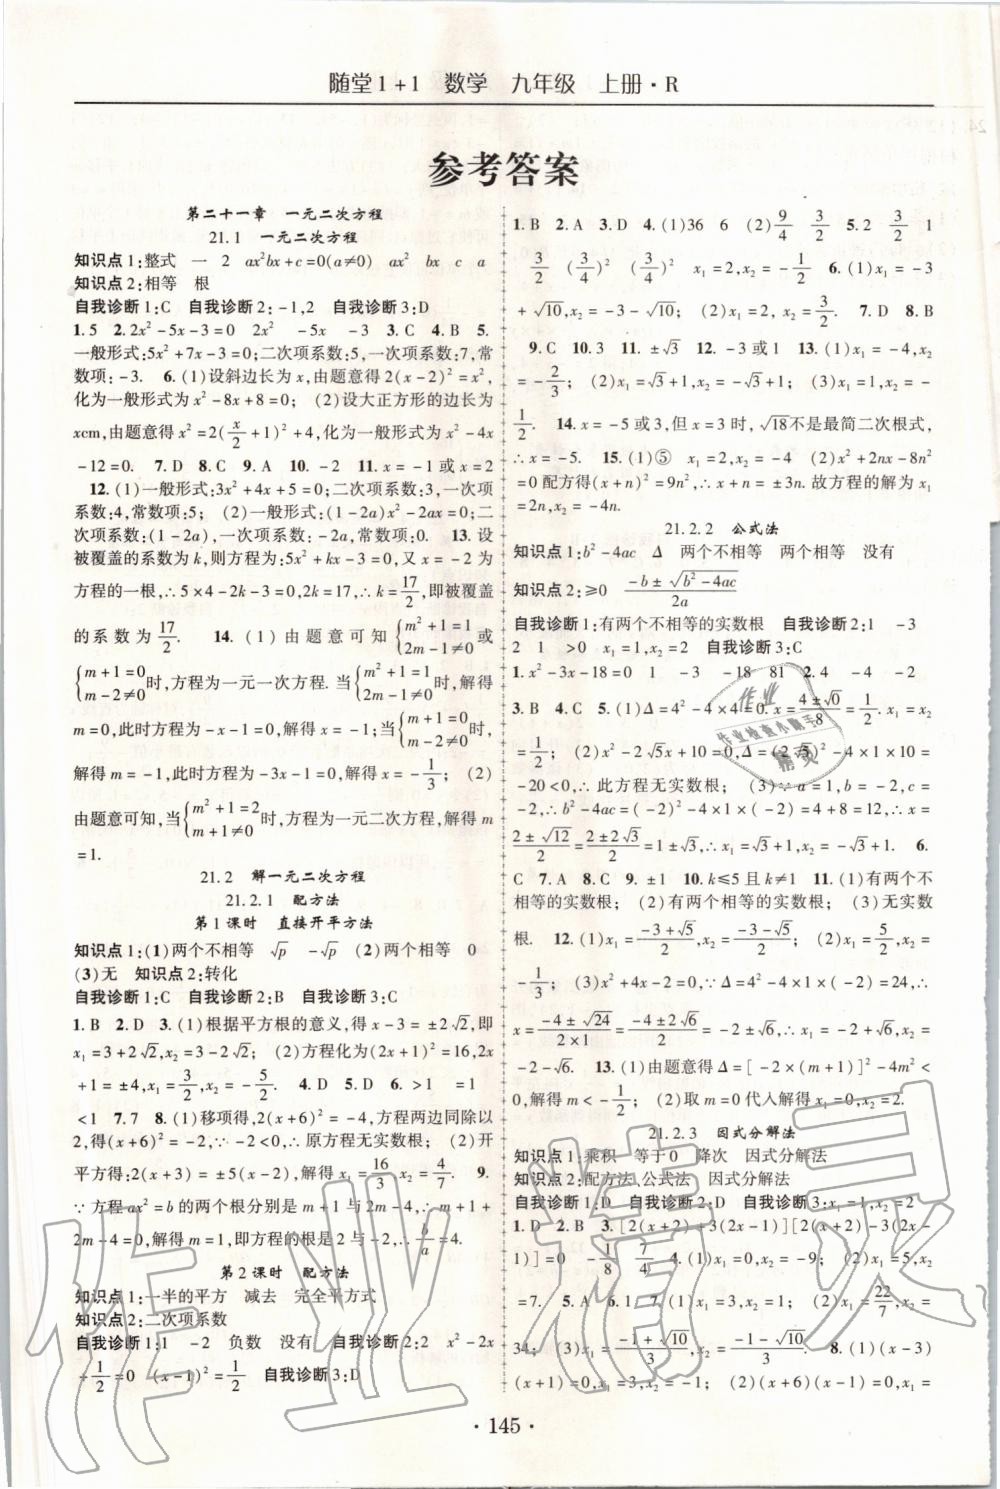 随堂1+1 数学 九年级 上册·R
参考答案
第二十一章 一元二次方程
21.1 一元二次方程
知识点1:整式 一 2 ax²bx+c=0(a≠0) ax² bx c a
知识点2:相等 根
自我诊断1:C 自我诊断2:-1,2 自我诊断3:D
1.5 2.2x²-5x-3=0 2x² -5x -3 3.C 4.B 5.
一般形式:5x²+7x-3=0;二次项系数:5,一次项系数:7,常
数项:-3. 6.(1)设斜边长为x,由题意得2(x-2)²=x²,
化为一般形式为x²-8x+8=0; (2)设大正方形的边长为
xcm,由题意得x²=2(x/2+1)²+4,化为一般形式为x²-4x
-12=0. 7.D 8.C 9.A 10.-2 11.x=-1或x=2
12.(1)一般形式:3x²+4x+5=0;二次项系数:3,一次项
系数:4,常数项:5; (2)一般形式:(1-2a)x²-2ax=0;二
次项系数:(1-2a),一次项系数:-2a,常数项:0. 13.设
被覆盖的系数为k,则方程为:5x²+kx-3=0,又x=-2为
方程的一根,∴5×4-2k-3=0,2k=17,∴k=17/2,即被覆盖
的系数为17/2. 14.(1)由题意可知{m²+1=1 2m-1≠0或
{m+1=0 m-2≠0时,方程为一元一次方程.当{m²+1=1 2m-1≠0时,解得
m=0,此时方程为-x-1=0,解得x=-1;当{m+1=0 m-2≠0时,
解得m=-1,此时方程为-3x-1=0,解得x=-1/3; (2)
由题意可知,当{m²+1=2 m+1≠0时,方程为一元二次方程,解得m
=1.
21.2 解一元二次方程
21.2.1 配方法
第1课时 直接开平方法
知识点1:(1)两个不相等 √p -√p (2)两个相等 0
(3)无 知识点2:转化
自我诊断1:C 自我诊断2:C 自我诊断3:C
1.B 2.D 3.(1)根据平方根的意义,得x-3=±2√2,即
x₁=3+2√2,x₂=3-2√2; (2)方程化为(2x+1)²=16,2x
+1=±4,x₁=3/2,x₂=-5/2. 4.D 5.D 6.>1 =1
<1 7.7 8.(1)移项得,2(x+6)²=-4,方程两边同除以
2,得(x+6)²=-2.∵-2<0,∴原方程无实数根; (2)开
平方得:2(x+3)=±5(x-2),解得x₁=16/3,x₂=4/7. 9.
∵方程ax²=b的两个根分别是m+1与2m-4,∴m+1+
2m-4=0,解得m=1,即方程的根是2与-2,∴b/a=4.
第2课时 配方法
知识点1:一半的平方 减去 完全平方式
知识点2:二次项系数
自我诊断1:1 -2 负数 没有 自我诊断2:2 x²-2x
+1/2=0 (x-1)²=1/2 自我诊断3:D
1.B 2.A 3.D 4.(1)36 6 (2)9/4 3/2 5.2 3/2 1
3/2 (3/4)² (3/4)² x₁=2,x₂=-1/2 6.(1)x₁=-3
+√10,x₂=-3-√10; (2)x₁=2,x₂=3/2. 7.D 8.B
9.C 10.3 11.±√3 12.-3或1 13.(1)x₁=-4,x₂
=-2/3; (2)x₁=√3+1,x₂=-√3+1; (3)x₁=1,x₂=-
1/2. 14.x=-5或3,但x=3时,√18不是最简二次根式,
∴x=-5. 15.(1)⑤ x₁=2,x₂=-4 (2)x²+2nx-8n²
=0配方得(x+n)²=9n²,∴x+n=±3n.故方程的解为x₁
=2n,x₂=-4n.
21.2.2 公式法
知识点1:b²-4ac Δ 两个不相等 两个相等 没有
知识点2:≥0 (-b±√(b²-4ac))/2a
自我诊断1:有两个不相等的实数根 自我诊断2:1 -3
2 1 >0 x₁=1,x₂=2 自我诊断3:C
1.x²-3x-18=0 1 -3 -18 81 2.4 -4 -2
3.B 4.C 5.(1)Δ=4²-4×4=0.x=(4±√0)/8=1/2.x₁=x₂
=1/2; (2)x²-2√5x+10=0,Δ=(2√5)²-4×1×10=
-20<0,此方程无实数根; (3)∵a=1,b=-2,c=
-2,∴b²-4ac=(-2)²-4×1×(-2)=4+8=12,∴x=
(2±√12)/2=(2±2√3)/2=1±√3,∴x₁=√3+1,x₂=-√3+1. 6.
C 7.A 8.C 9.±1 10.k≤5且k≠1 11.(1)有两个不
相等的实数根; (2)有两个相等的实数根; (3)无实数
根. 12.(1)x₁=(-3+√5)/2,x₂=(-3-√5)/2; (2)x₁=5/2,x₂=
-1/3; (3)x²+4x-2=0,∵Δ=4²-4×1×(-2)=24,∴
x=(-4±√24)/(2×1)=(-4±2√6)/2=-2±√6,∴x₁=-2+√6,x₂=
-2-√6. 13.(1)由题意得Δ=[-2×(m+1)]²-4m²<
0,解得m<-1/2; (2)取m=0代入解得x₁=0,x₂=2.
21.2.3 因式分解法
知识点1:乘积 等于0 降次 因式分解法
知识点2:配方法 公式法 因式分解法
自我诊断1:D 自我诊断2:D 自我诊断3:x₁=1,x₂=2
1.D 2.B 3.[2(x+2)+3(2x-1)][2(x+2)-3(2x
-1)]=0 -1/8 7/4 4.(1)x₁=0,x₂=-9; (2)x₁=5,x₂
=7. 5.A 6.1 7.(1)x₁=3,x₂=1; (2)x₁=22/7,x₂=
34; (3)x₁=(-1+√10)/3,x₂=(-1-√10)/3. 8.(1)(x-3)
(x+1)=0,x₁=3,x₂=-1; (2)(x+6)(x-1)=0,x₁=
·145·
作业精灵
作业
作业检查小助手
精灵